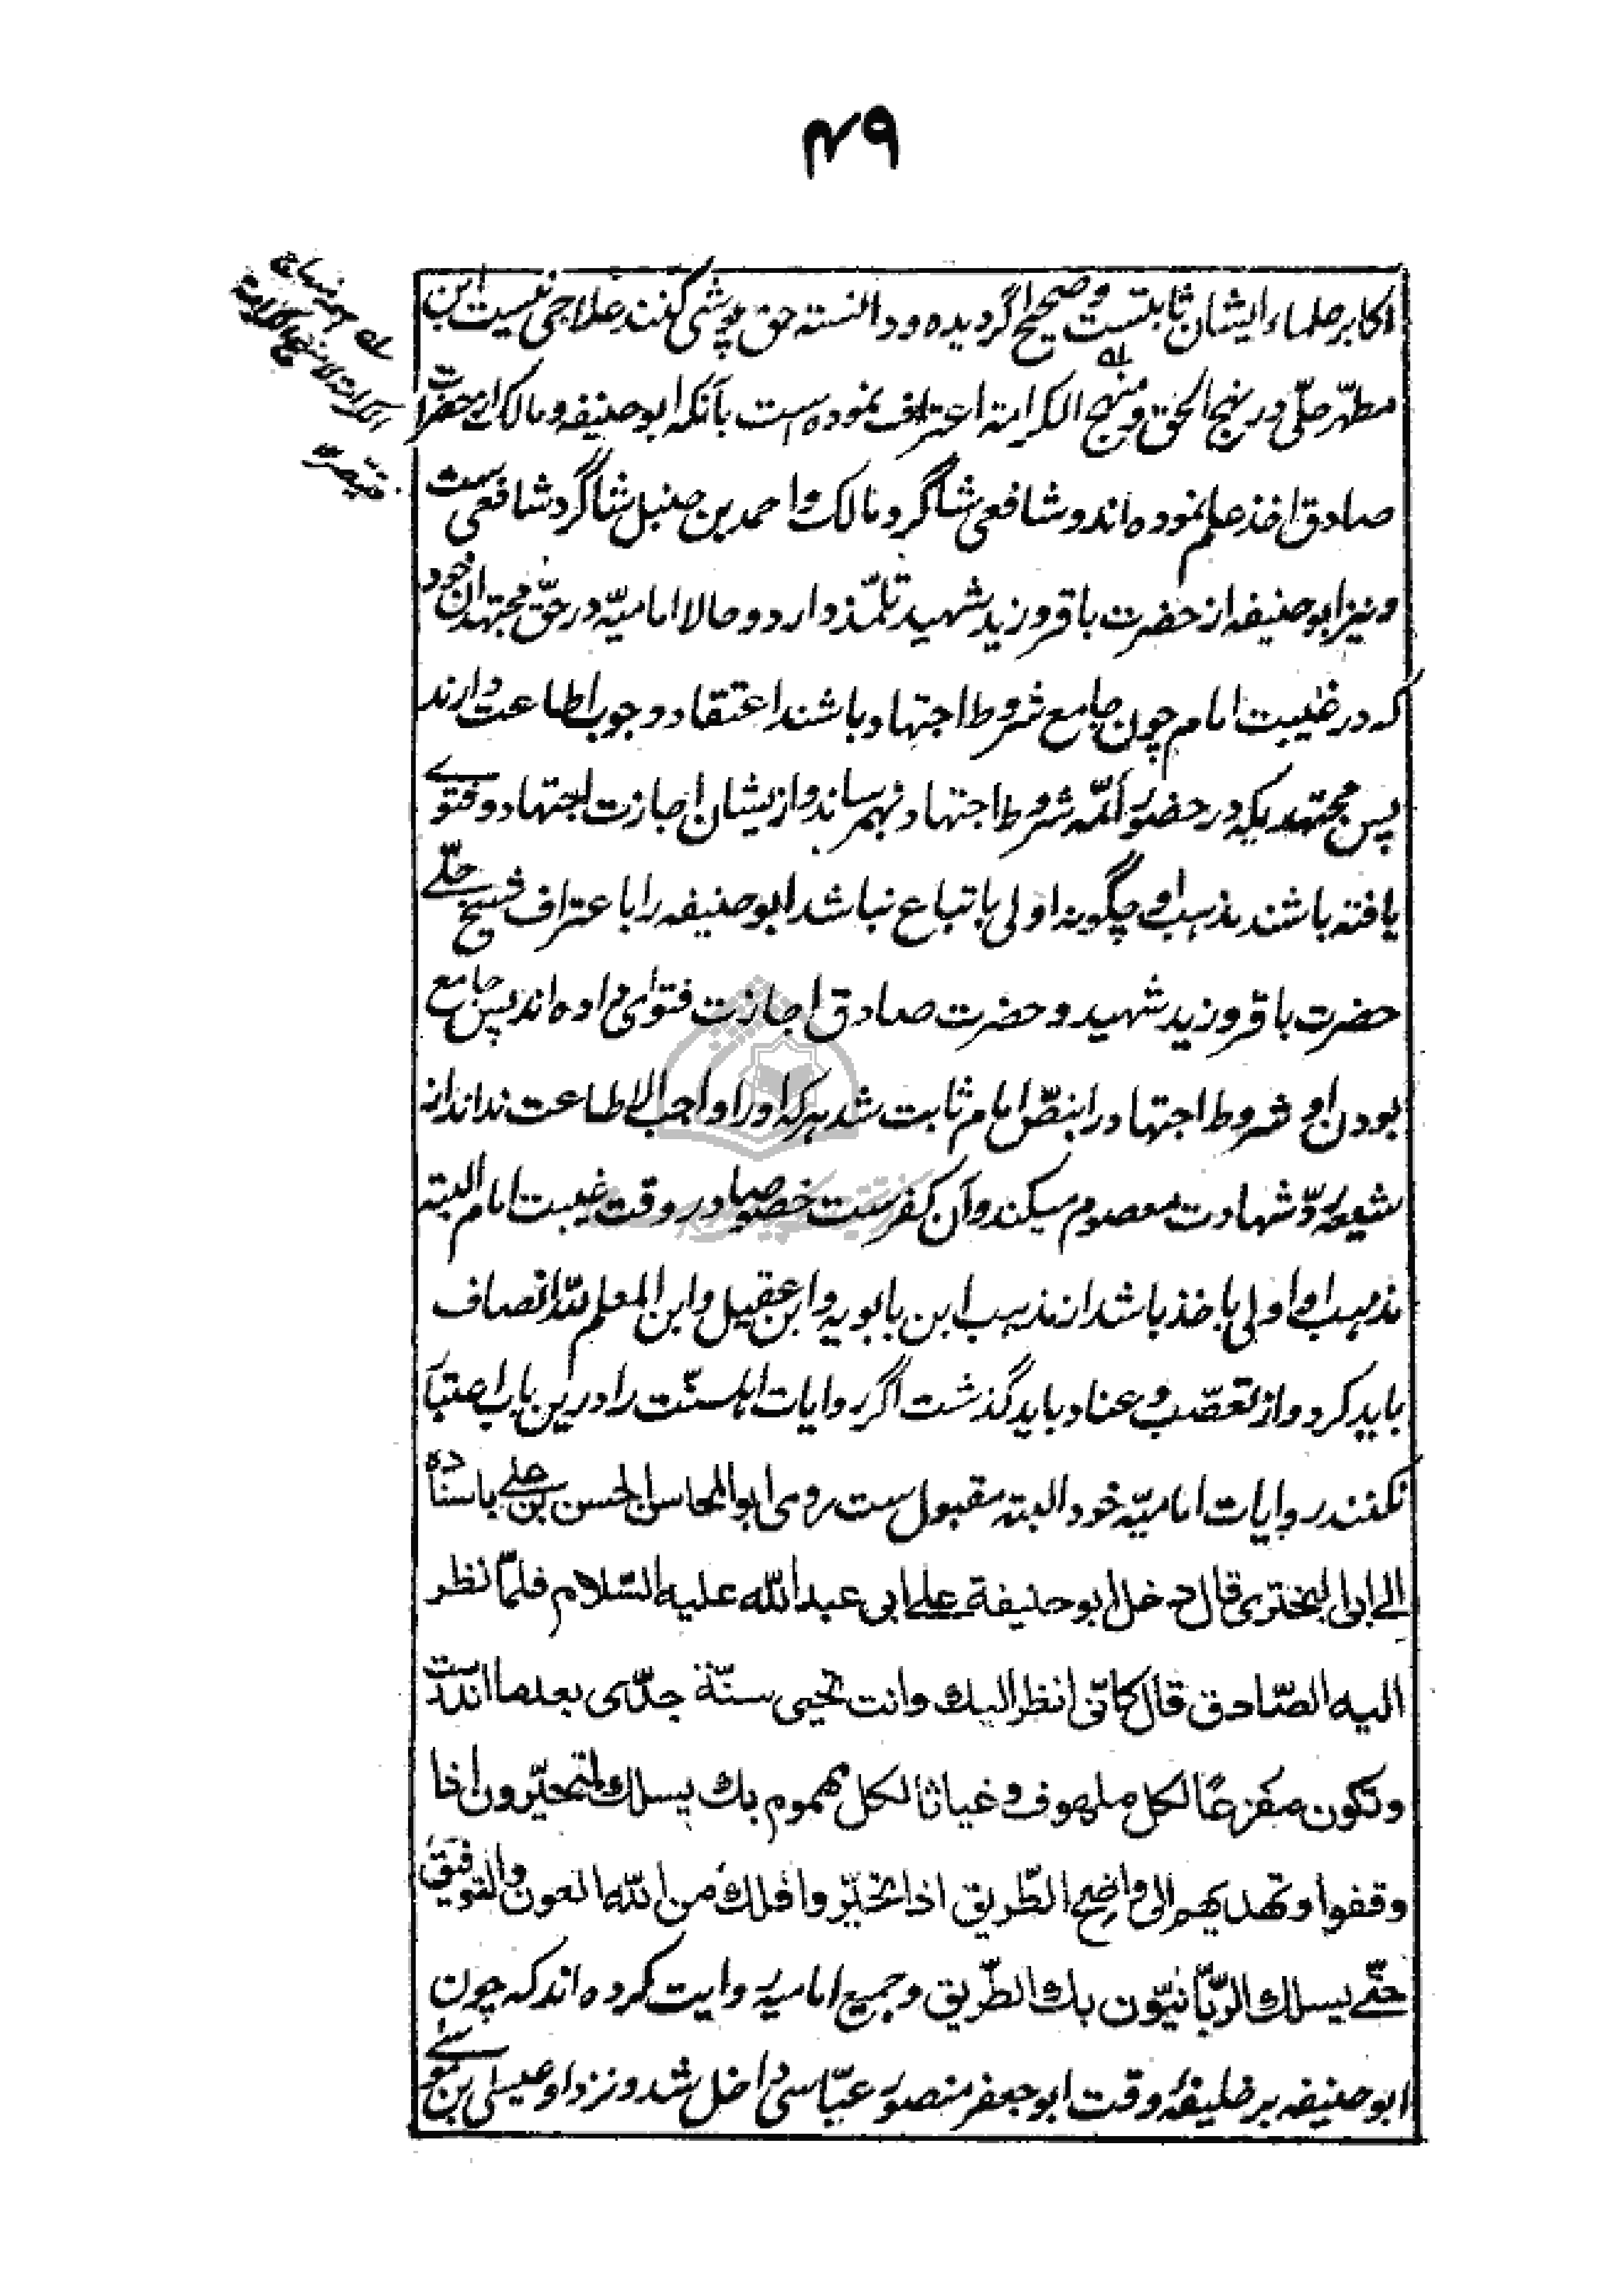 ۴۹
اکابر علماء ایشان ثابتست و صحیح گردیده و دانسته حق پوشی کنند علاجی نیست ابن
مطهّر حلّی در نهج الحق و منهج الکرامة اعتراف نموده است بآنکه ابو حنیفه و مالک از حضرت
صادق اخذ علم نموده اند و شافعی شاگرد مالک و احمد بن حنبل شاگرد شافعی ست
و نیز ابو حنیفه از حضرت باقر و زید شهید تلمّذ دارد و حالا امامیّه در حقّ مجتهدان خود
که در غیبت امام چون جامع شروط اجتهاد باشند اعتقاد وجوب اطاعت دارند
پس مجتهدیکه در حضور ائمّه شروط اجتهاد بهم رساند و ازیشان اجازت اجتهاد و فتوے
یافته باشند مذهب او چگونه اولی باتباع نباشد ابو حنیفه را با عتراف شیخ حلّے
حضرت باقر و زید شهید و حضرت صادق اجازت فتوای داده اند پس جامع
بودن او شروط اجتهاد را بنصّ امام ثابت شد هر که او را واجب الاطاعت نداند از
شیعه ردّ شهادت معصوم میکند و آن کفرست خصوصا در وقت غیبت امام البته
مذهب او اولی باخذ باشد از مذهب ابن بابویه و ابن عقیل و ابن المعلم لله انصاف
باید کرد و از تعصّب و عناد باید گذشت اگر روایات اهلسنّت را درین باب اعتبار
نکنند روایات امامیّه خود البته مقبول ست روی ابو المحاسن الحسن بن علے باسناده
الے ابی البختری قال دخل ابو حنیفة علے ابی عبد الله علیه السّلام فلمّا نظر
الیه الصّادق قال کانّی انظر الیک وانت تحیی سنّة جدّی بعد ما اندرست
وتکون مفزعًا لکل ملهوف وغیاثا لکل مهموم بک یسلک المتحیّرون اذا
وقفوا وتهدیهم الی واضح الطّریق اذا تحیّروا فلک من الله العون والتوفیق
حتّے یسلک الربّانیّون بک الطّریق و جمیع امامیه روایت کرده اند که چون
ابو حنیفه بر خلیفهٔ وقت ابو جعفر منصور عبّاسی داخل شد و نزد او عیسی بن موسے